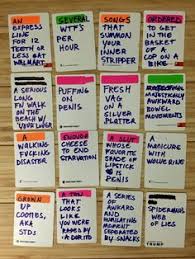 AN
EXPRESS
LINE FOR
12 TEETH
OR LESS
@ WALMART
SEVERAL
WTF'S
PER
HOUR
SONGS
THAT
SUMMON
YOUR
INNER
STRIPPER
ORDERED
TO GET
IN THE
BASKET OF
A COP
ON A
BIKE
A SERIOUS
LONG
WALK
ON THE
BEACH
PUFFING
ON
PENIS
FRESH
VAG ON
A SILVER
PLATTER
AWKWARD
BOWEL
MOVEMENTS
A
WALKING
FUCKING
DISASTER
ENOUGH
CHEESE
TO END
STARVATION
A SLUT
WHOSE
FAVORITE
SHADE OF
LIPSTICK
IS
PENIS
A
MANICURE
WITH
WOLVERINE
GROWN
UP
COOTIES,
AKA
STDs
THAT
LOOKS
LIKE
YOU WERE
RAPED BY
A DORITO
A SERIES
OF
AWKWARD
AND
HUMILIATING
MOMENTS
SEPARATED
BY SNACKS
SPIDERMANS
WEB
OF LIES